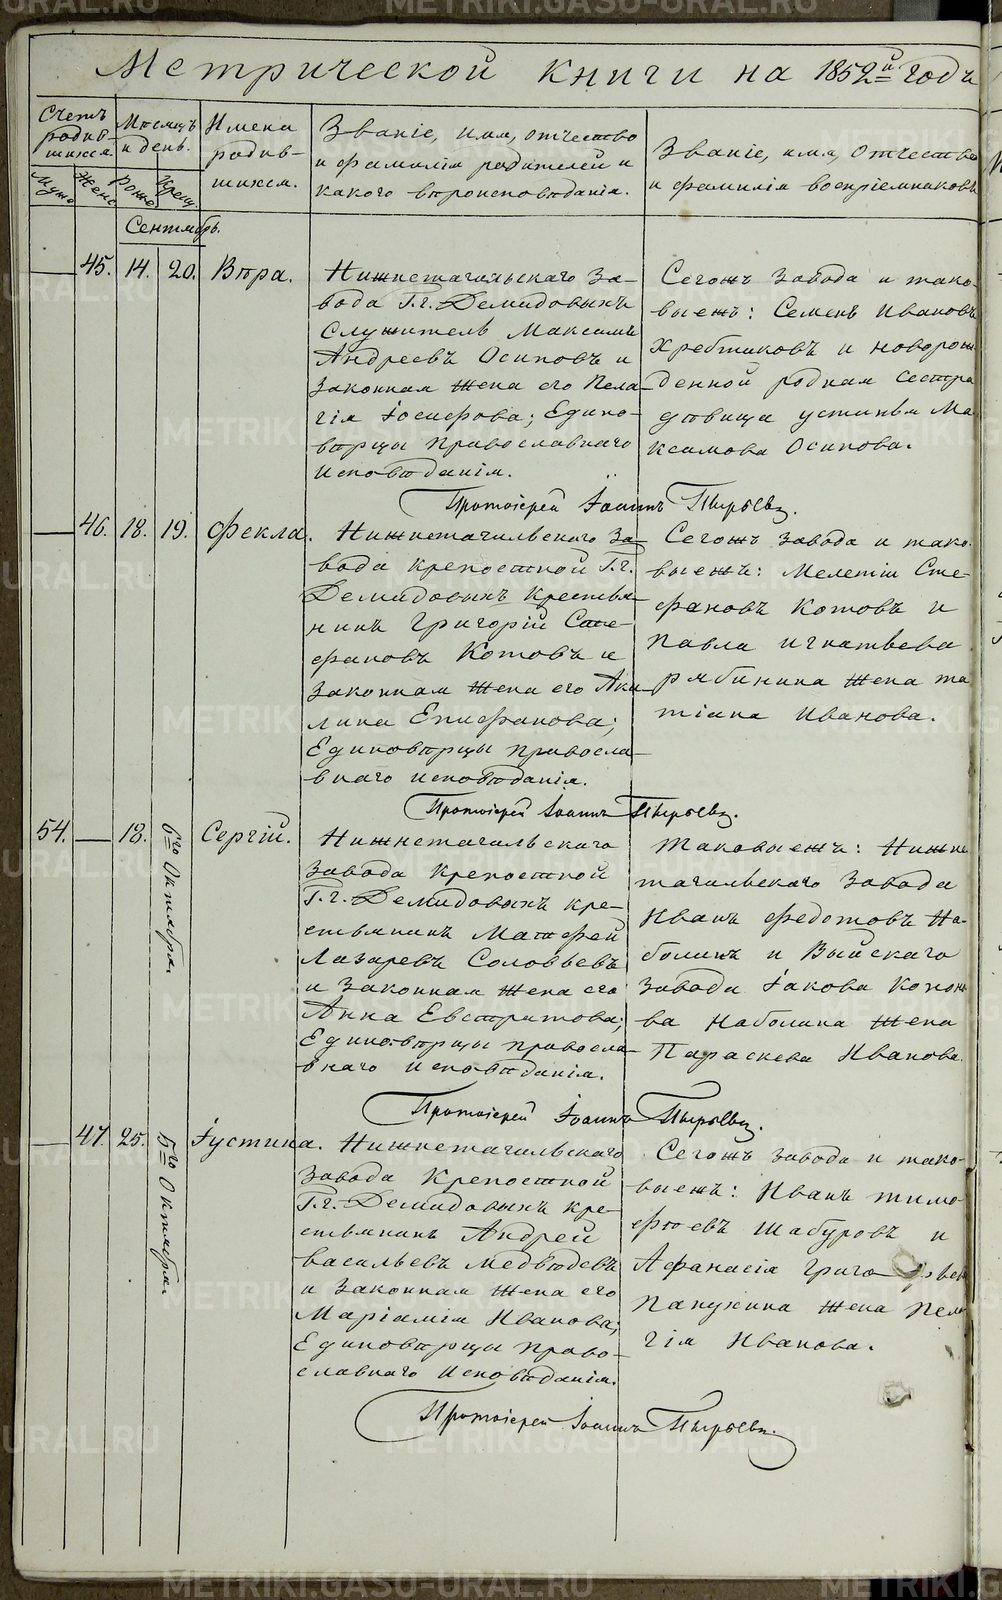 Метрической книги на 1852й годъ
Счетъ родив-
шихся.
Муж.
Женс.
Мѣсяцъ
и день.
Рожд.
Крещ.
Имена
родив-
шихся.
Званіе, имя, отчество
и фамилія родителей и
какого вѣроисповѣданія.
Званіе, имя, отчество
и фамилія воспріемниковъ
Сентябрь.
45. 14. 20. Вѣра.
Нижнетагильскаго За-
вода Г.г. Демидовыхъ
Служитель Максимъ
Андреевъ Осиповъ и
Законная жена его Пела-
гія Іосифова; Едино-
вѣрцы Православнаго
Исповѣданія.
Сегожъ Завода и тако-
выежъ: Семенъ Ивановъ
Хребтиковъ и новорож-
денной родная сестра
дѣвица Устинья Ма-
ксимова Осипова.
Протоіерей Іоаннъ Пырьевъ.
46. 18. 19. Фекла.
Нижнетагильскаго За-
вода крепостной Г.г.
Демидовыхъ Крестья-
нинъ Григорій Сте-
фановъ Котовъ и
Законная жена его Аки-
лина Епифанова;
Единовѣрцы правосла-
внаго исповѣданія.
Сегожъ Завода и тако-
выежъ: Мелетій Сте-
фановъ Котовъ и
Павла Игнатьева
Рябинина жена Та-
тіана Иванова.
Протоіерей Іоаннъ Пырьевъ.
54. 18. 6го Октября. Сергій.
Нижнетагильскаго
Завода Крепостной
Г.г. Демидовыхъ кре-
стьянинъ Матфей
Лазаревъ Соловьевъ
и Законная жена его
Анна Евстратова;
Единовѣрцы правосла-
внаго исповѣданія.
Таковыежъ: Нижне-
тагильскаго Завода
Иванъ Федотовъ На-
болинъ и Выйскаго
Завода Іакова Кононо-
ва Наболина жена
Параскева Иванова.
Протоіерей Іоаннъ Пырьевъ.
47. 25. 5го Октября Іустина.
Нижнетагильскаго
Завода Крепостной
Г.г. Демидовыхъ кре-
стьянинъ Андрей
Васильевъ Медвѣдевъ
и Законная жена его
Маріамія Иванова;
Единовѣрцы право-
славнаго Исповѣданія.
Сегожъ Завода и тако-
выежъ: Иванъ Тимо-
фѣевъ Шабуровъ и
Афанасія Григорьева
Папужина жена Пела-
гія Иванова.
Протоіерей Іоаннъ Пырьевъ.
METRIKI.GASO-URAL.RU